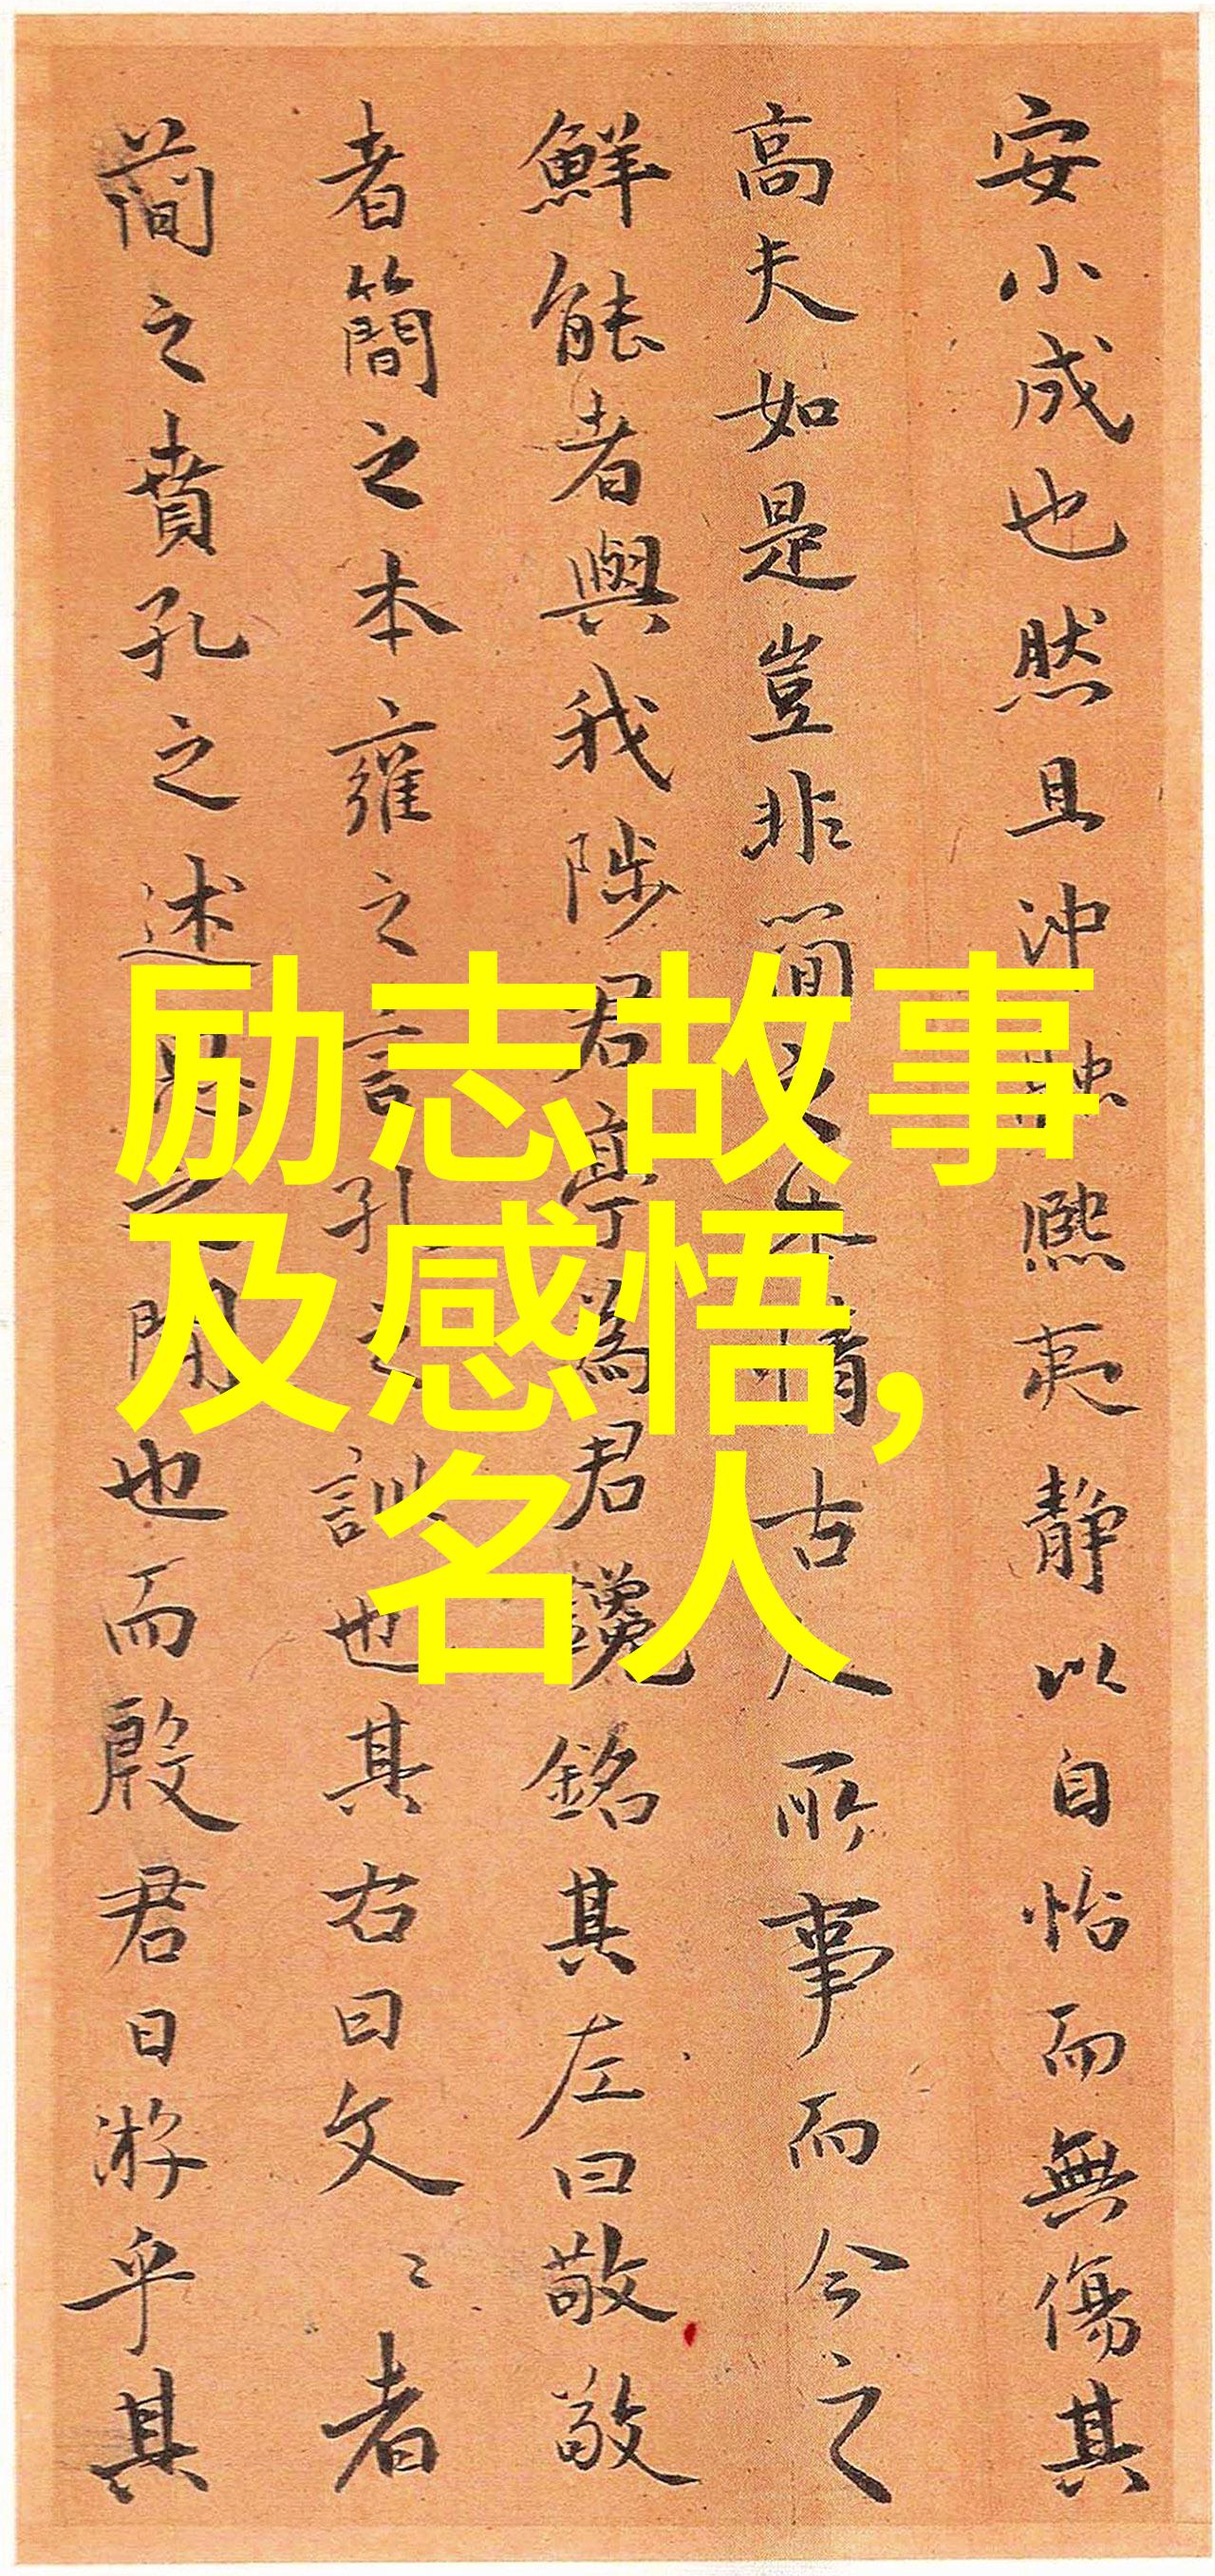 安小成也然且沖融熙夷静以自怡而無傷其
高夫如是豈非簡之本情古人所事而今之
鮮能者與我陟君亭為君讒銘其左曰敬敬
者簡之本雍之言孔之訓也其右曰文〻者
簡之賁孔之述也而殷君日游乎其
励志故事
及感悟,
名人